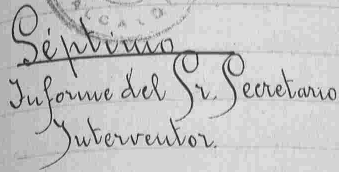 CALO
Séptimo
Informe del Sr. Secretario
Interventor.